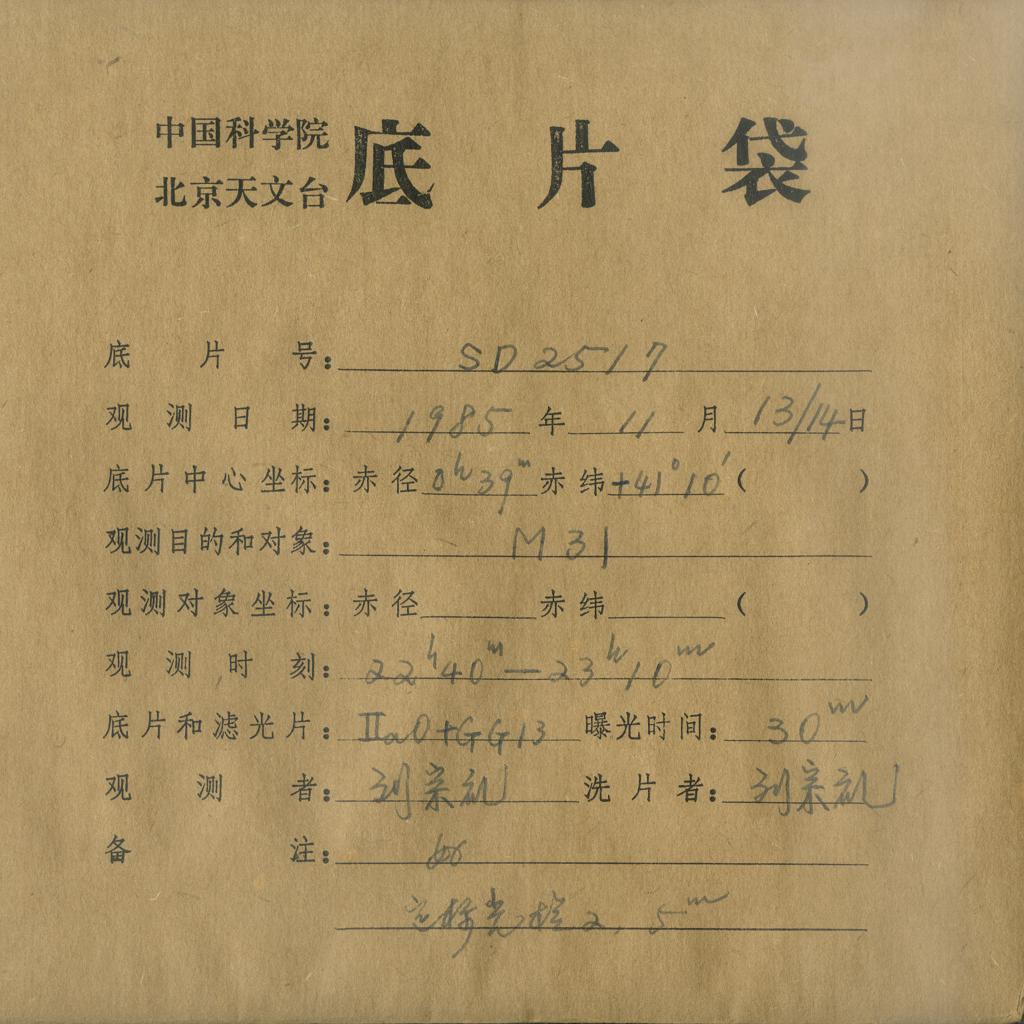 中国科学院
北京天文台
底片袋
底片号：SD2517
观测日期：1985年11月13/14日
底片中心坐标：赤径0ʰ39ᵐ赤纬+41°10′（ ）
观测目的和对象：M31
观测对象坐标：赤径 赤纬 （ ）
观测时刻：22ʰ40ᵐ—23ʰ10ᵐ
底片和滤光片：ⅡaO+GG13 曝光时间：30ᵐ
观测者：刘宗礼 洗片者：刘宗礼
备注：
光 2, 5ᵐ